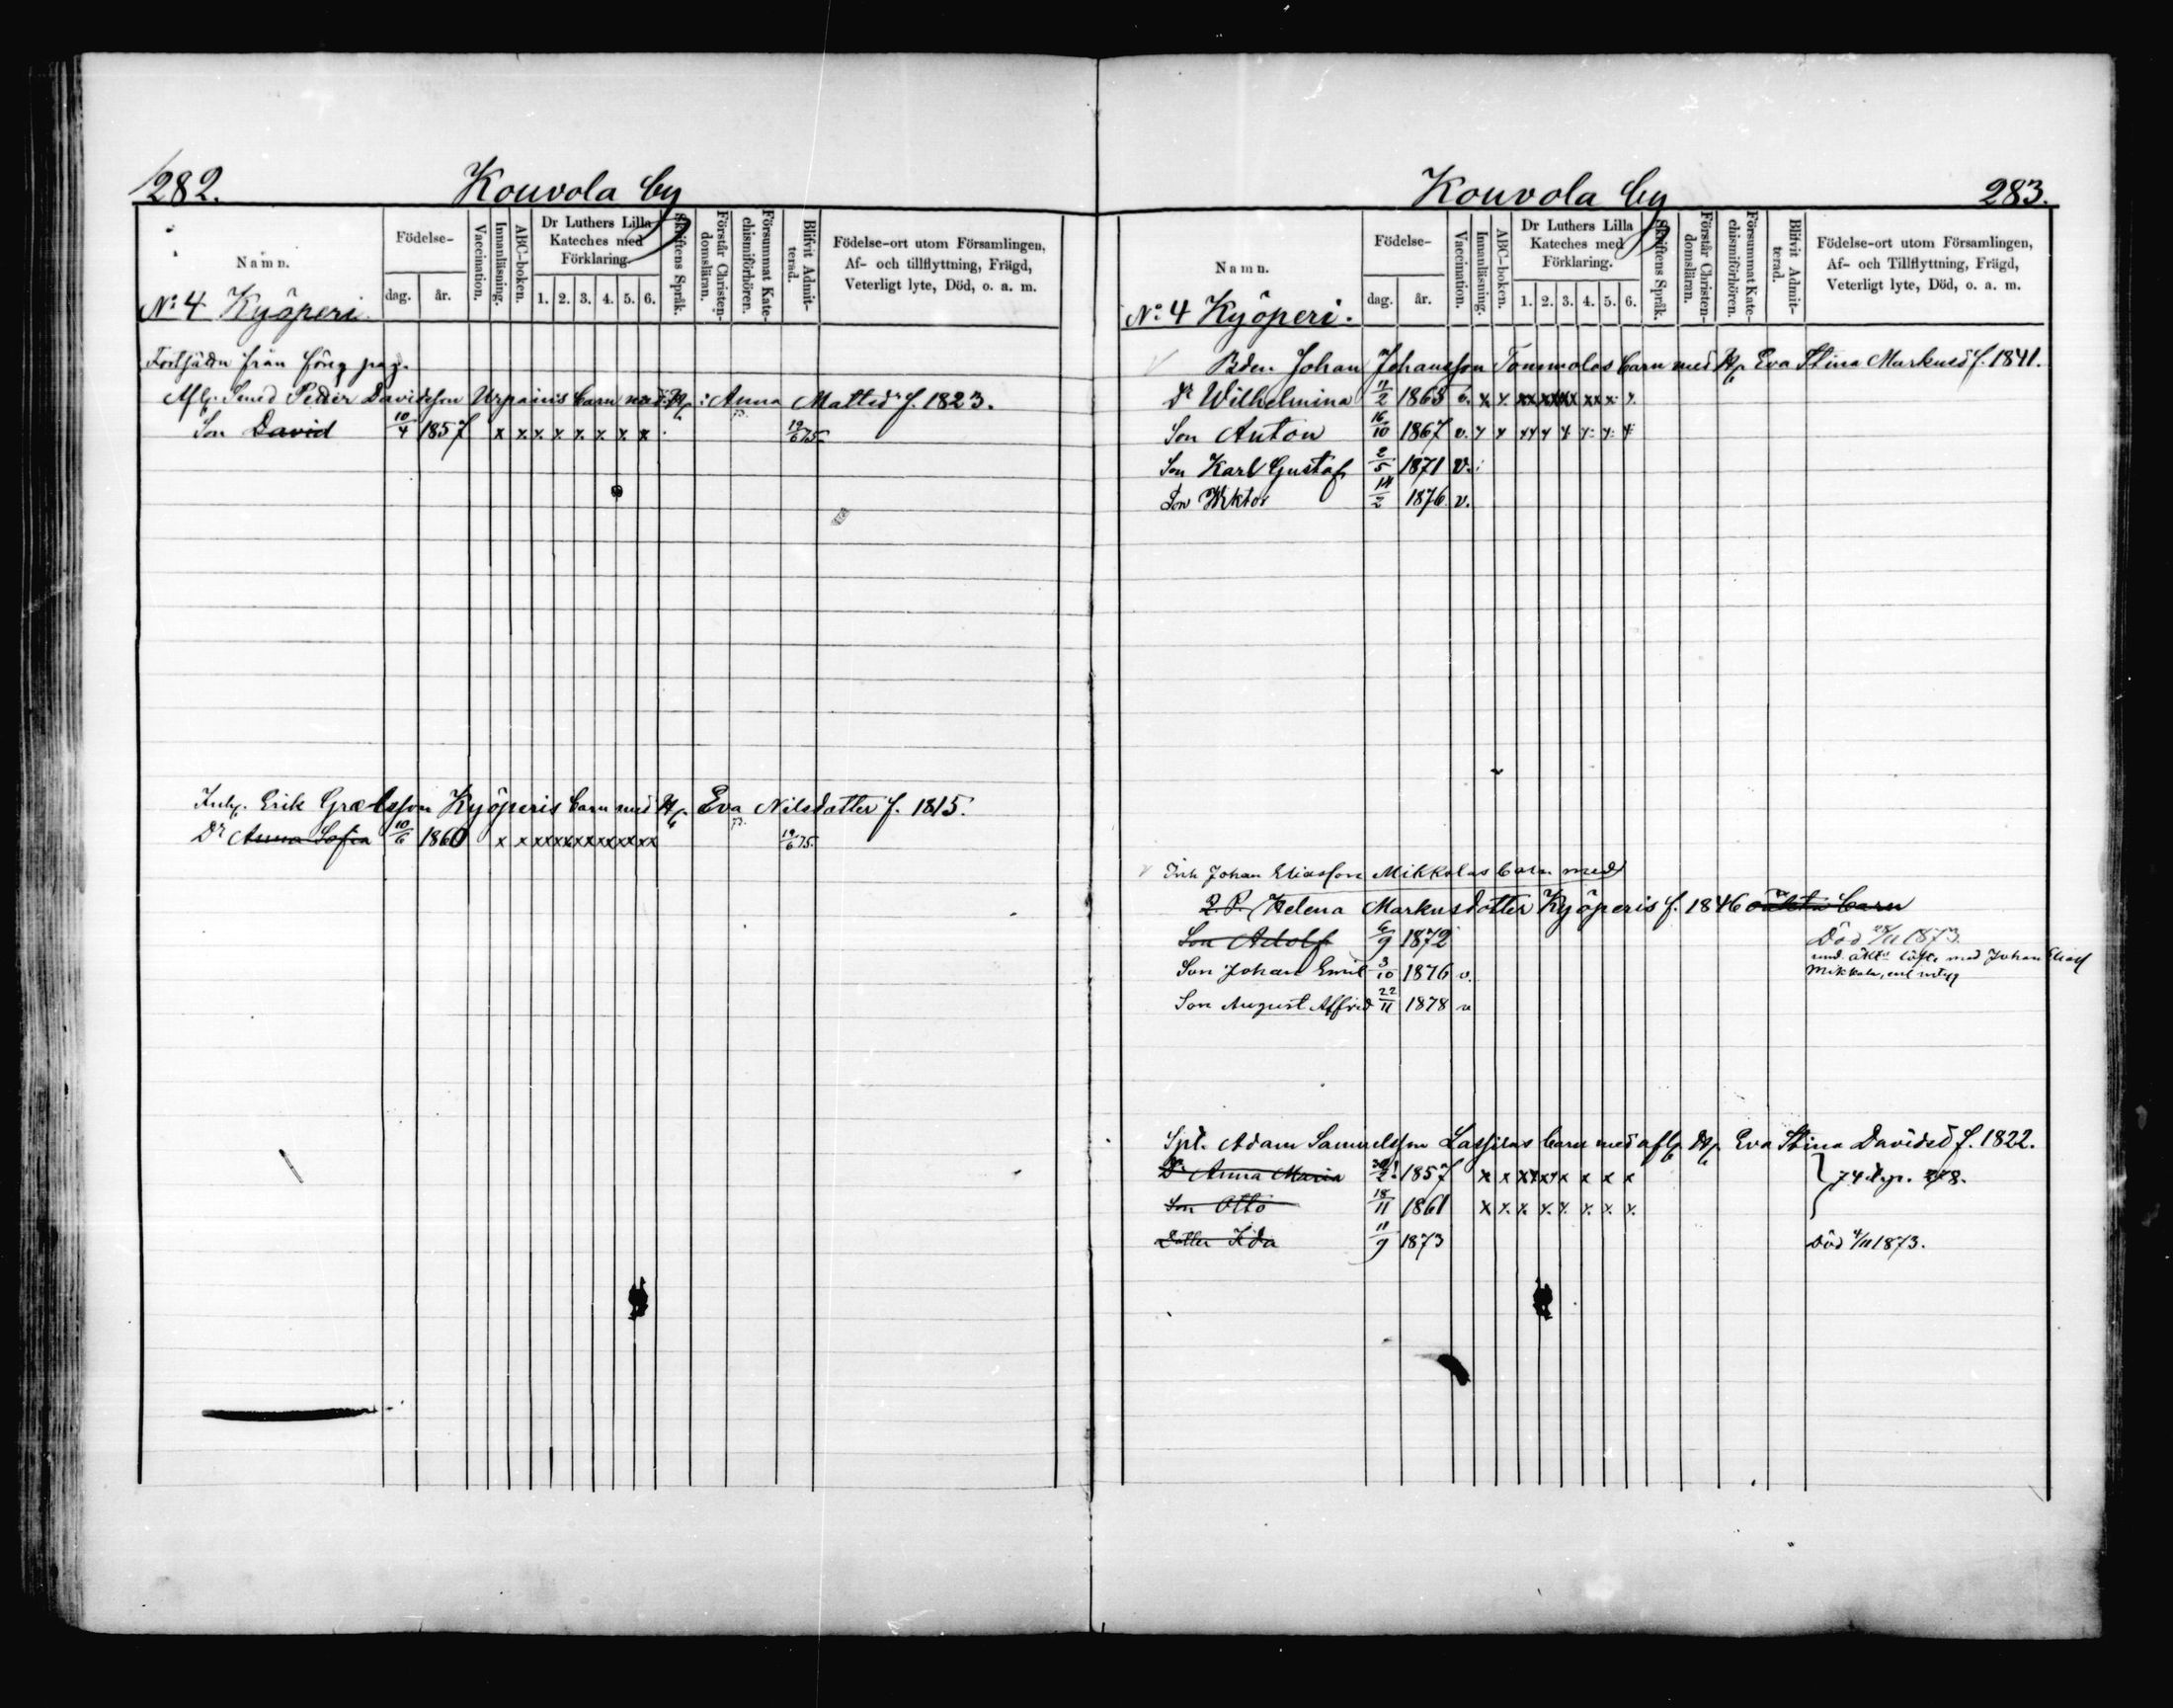 282.
Kouvola by
Namn.
Födelse-
dag.
år.
Vaccination.
Innanläsning.
ABC-boken.
Dr Luthers Lilla
Kateches med
Förklaring.
1. 2. 3. 4. 5. 6.
Skriftens Språk.
Förstår Christen-
domsläran.
Försummat Kate-
chismiförhören.
Blifvit Admit-
terad.
Födelse-ort utom Församlingen,
Af- och tillflyttning, Frägd,
Veterligt lyte, Död, o. a. m.
No: 4 Kyöperi.
Fortsättn från föreg pag.
Afl. Smed Petter Davidsson Urpainis barn med H. Anna Mattsdr f. 1823.
Son David 10/4 1857 x x x x x x x x 19/6 75.
Inh. Erik Grelsson Kyöperis barn med H. Eva Nilsdotter f. 1815.
Dr Anna Sofia 10/6 1860 x x xxxxxxxxxxxx 19/6 75.
Kouvola by
283.
Namn.
Födelse-
dag.
år.
Vaccination.
Innanläsning.
ABC-boken.
Dr Luthers Lilla
Kateches med
Förklaring.
1. 2. 3. 4. 5. 6.
Skriftens Språk.
Förstår Christen-
domsläran.
Försummat Kate-
chismiförhören.
Blifvit Admit-
terad.
Födelse-ort utom Församlingen,
Af- och Tillflyttning, Frägd,
Veterligt lyte, Död, o. a. m.
No: 4 Kyöperi.
Bden Johan Johansson Tommolas barn med H. Eva Stina Markusd f. 1841.
Dr Wilhelmina 11/2 1865 v. x x xx xxxx xx x x
Son Anton 16/10 1867 v. x x xx x x x x x
Son Karl Gustaf 2/5 1871 v.
Son Wiktor 14/2 1876. v.
Inh Johan Eliasson Mikkolas barn med
Q. P. Helena Markusdotter Kyöperis f. 1846 oäkta barn
Son Adolf 6/9 1872 Död /11 1873.
Son Johan Emil 3/10 1876 v. und. äkt. löfte med Johan Eliass
Mikkola, enl intyg
Son August Alfrid 22/11 1878 v
Spt. Adam Samuelsson Lassilas barn med afl. H. Eva Stina Davidsd f. 1822.
Dr Anna Maria 1857 x x xxxx x x x 74 p. 278.
Son Otto 18/11 1861 x x x x x x x x
Dotter Ida 11/9 1873 Död 4/11 1873.